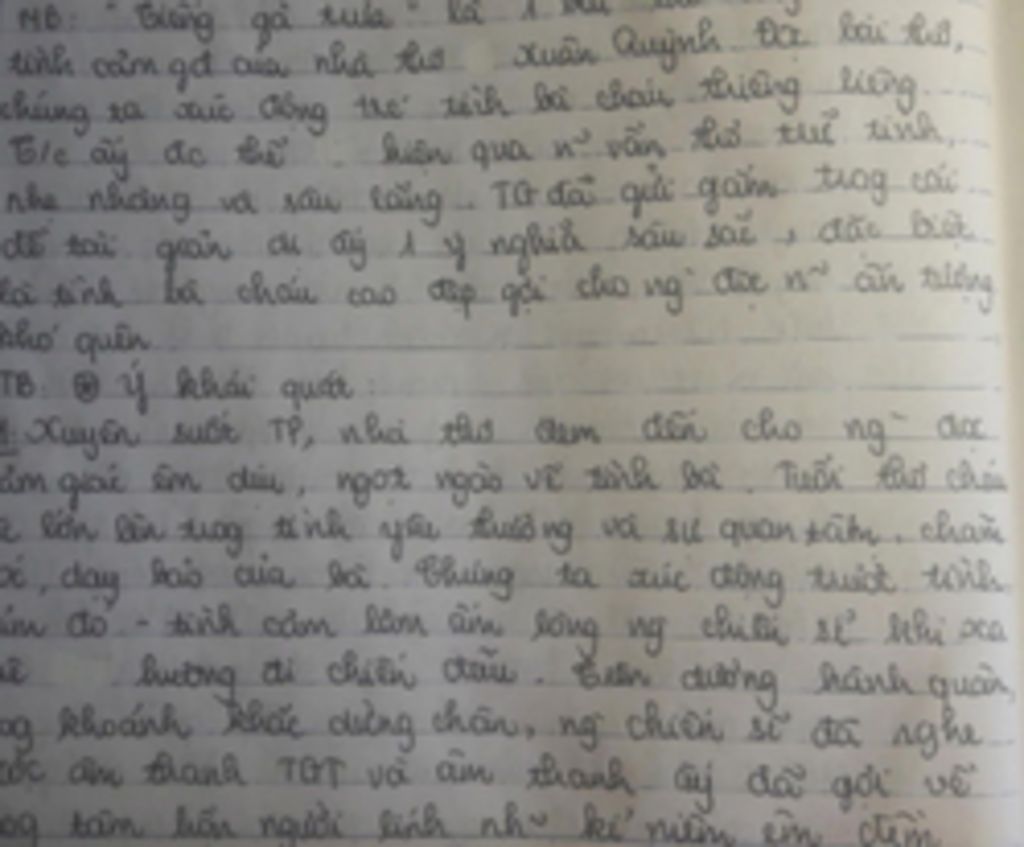 MB: "Tiếng gà trưa" là 1 bài
tình cảm gđ của nhà thơ Xuân Quỳnh. Đọc bài thơ,
chúng ta xúc động trc tình bà cháu thiêng liêng.
T/c ấy đc thể hiện qua n~ vần thơ trữ tình,
nhẹ nhàng và sâu lắng. TG đã gửi gắm trog cái
đề tài giản dị ấy 1 ý nghĩa sâu sắc, đặc biệt
là tình bà cháu cao đẹp gợi cho ng đọc n~ ấn tượng
khó quên
TB: Ý khái quát:
Xuyên suốt TP, nhà thơ đem đến cho ng` đọc
cảm giác êm dịu, ngọt ngào về tình bà. Tuổi thơ cháu
lớn lên trog tình yêu thương và sự quan tâm, chăm
, dạy bảo của bà. Chúng ta xúc động trước tình
đó - tình cảm làm ấm lòng ng chiến sĩ khi xa
hương đi chiến đấu. Trên đường hành quân,
khoảnh khắc dừng chân, ng chiến sĩ đã nghe
âm thanh TGT và âm thanh ấy đã gợi về
tâm hồn người lính nh~ kỉ niệm êm đềm